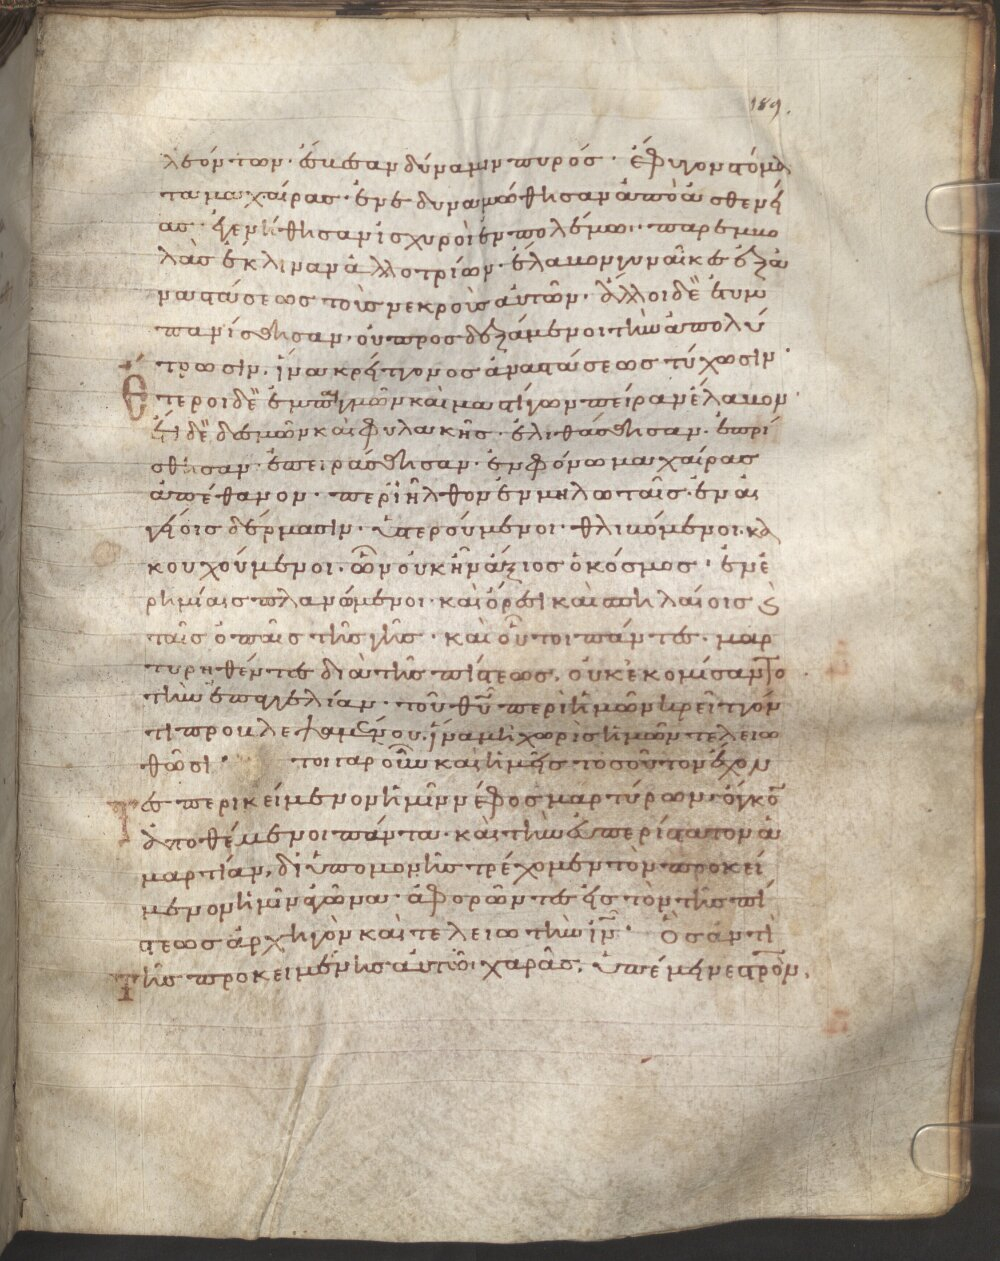 189.
λεόντων· ἔσβεσαν δύναμιν πυρός· ἔφυγον στόμα
τα μαχαίρας· ἐνεδυναμώθησαν ἀπὸ ἀσθενεί
ας· ἐγενήθησαν ἰσχυροὶ ἐν πολέμω· παρεμβο
λὰς ἔκλιναν ἀλλοτρίων· ἔλαβον γυναῖκες ἐξ ἀ
ναστάσεως τοὺς νεκροὺς αὐτῶν· ἄλλοι δὲ ἐτυμ
πανίσθησαν· οὐ προσδεξάμενοι τὴν ἀπολύ
τρωσιν· ἵνα κρείττονος ἀναστάσεως τύχωσιν·
Ἕτεροι δὲ ἐμπαιγμῶν καὶ μαστίγων πεῖραν ἔλαβον·
ἔτι δὲ δεσμῶν καὶ φυλακῆς· ἐλιθάσθησαν· ἐπρί
σθησαν· ἐπειράσθησαν· ἐν φόνω μαχαίρας
ἀπέθανον· περιῆλθον ἐν μηλωταῖς· ἐν αἰ
γείοις δέρμασιν· ὑστερούμενοι· θλιβόμενοι· κα
κουχούμενοι· ὧν οὐκ ἦν ἄξιος ὁ κόσμος· ἐν ἐ
ρημίαις πλανώμενοι· καὶ ὄρεσι καὶ σπηλαίοις ϗ
ταῖς ὀπαῖς τῆς γῆς· καὶ οὗτοι πάντες· μαρ
τυρηθέντες διὰ τῆς πίστεως· οὐκ ἐκομίσαντο
τὴν ἐπαγγελίαν· τοῦ θῦ περὶ ἡμῶν κρεῖττόν
τι προβλεψαμένου· ἵνα μὴ χωρὶς ἡμῶν τελειω
θῶσι· τοιγαροῦν καὶ ἡμεῖς τοσοῦτον ἔχον
τες περικείμενον ἡμῖν νέφος μαρτύρων· ὄγκον
ἀποθέμενοι πάντα· καὶ τὴν εὐπερίστατον ἁ
μαρτίαν, δι ὑπομονῆς τρέχομεν τὸν προκεί
μενον ἡμῖν ἀγῶνα· ἀφορῶντες εἰς τὸν τῆς πί
στεως ἀρχηγὸν καὶ τελειωτὴν ἰν· Ὃς ἀντὶ
τῆς προκειμένης αὐτῶ χαρᾶς, ὑπέμεινε στρον,